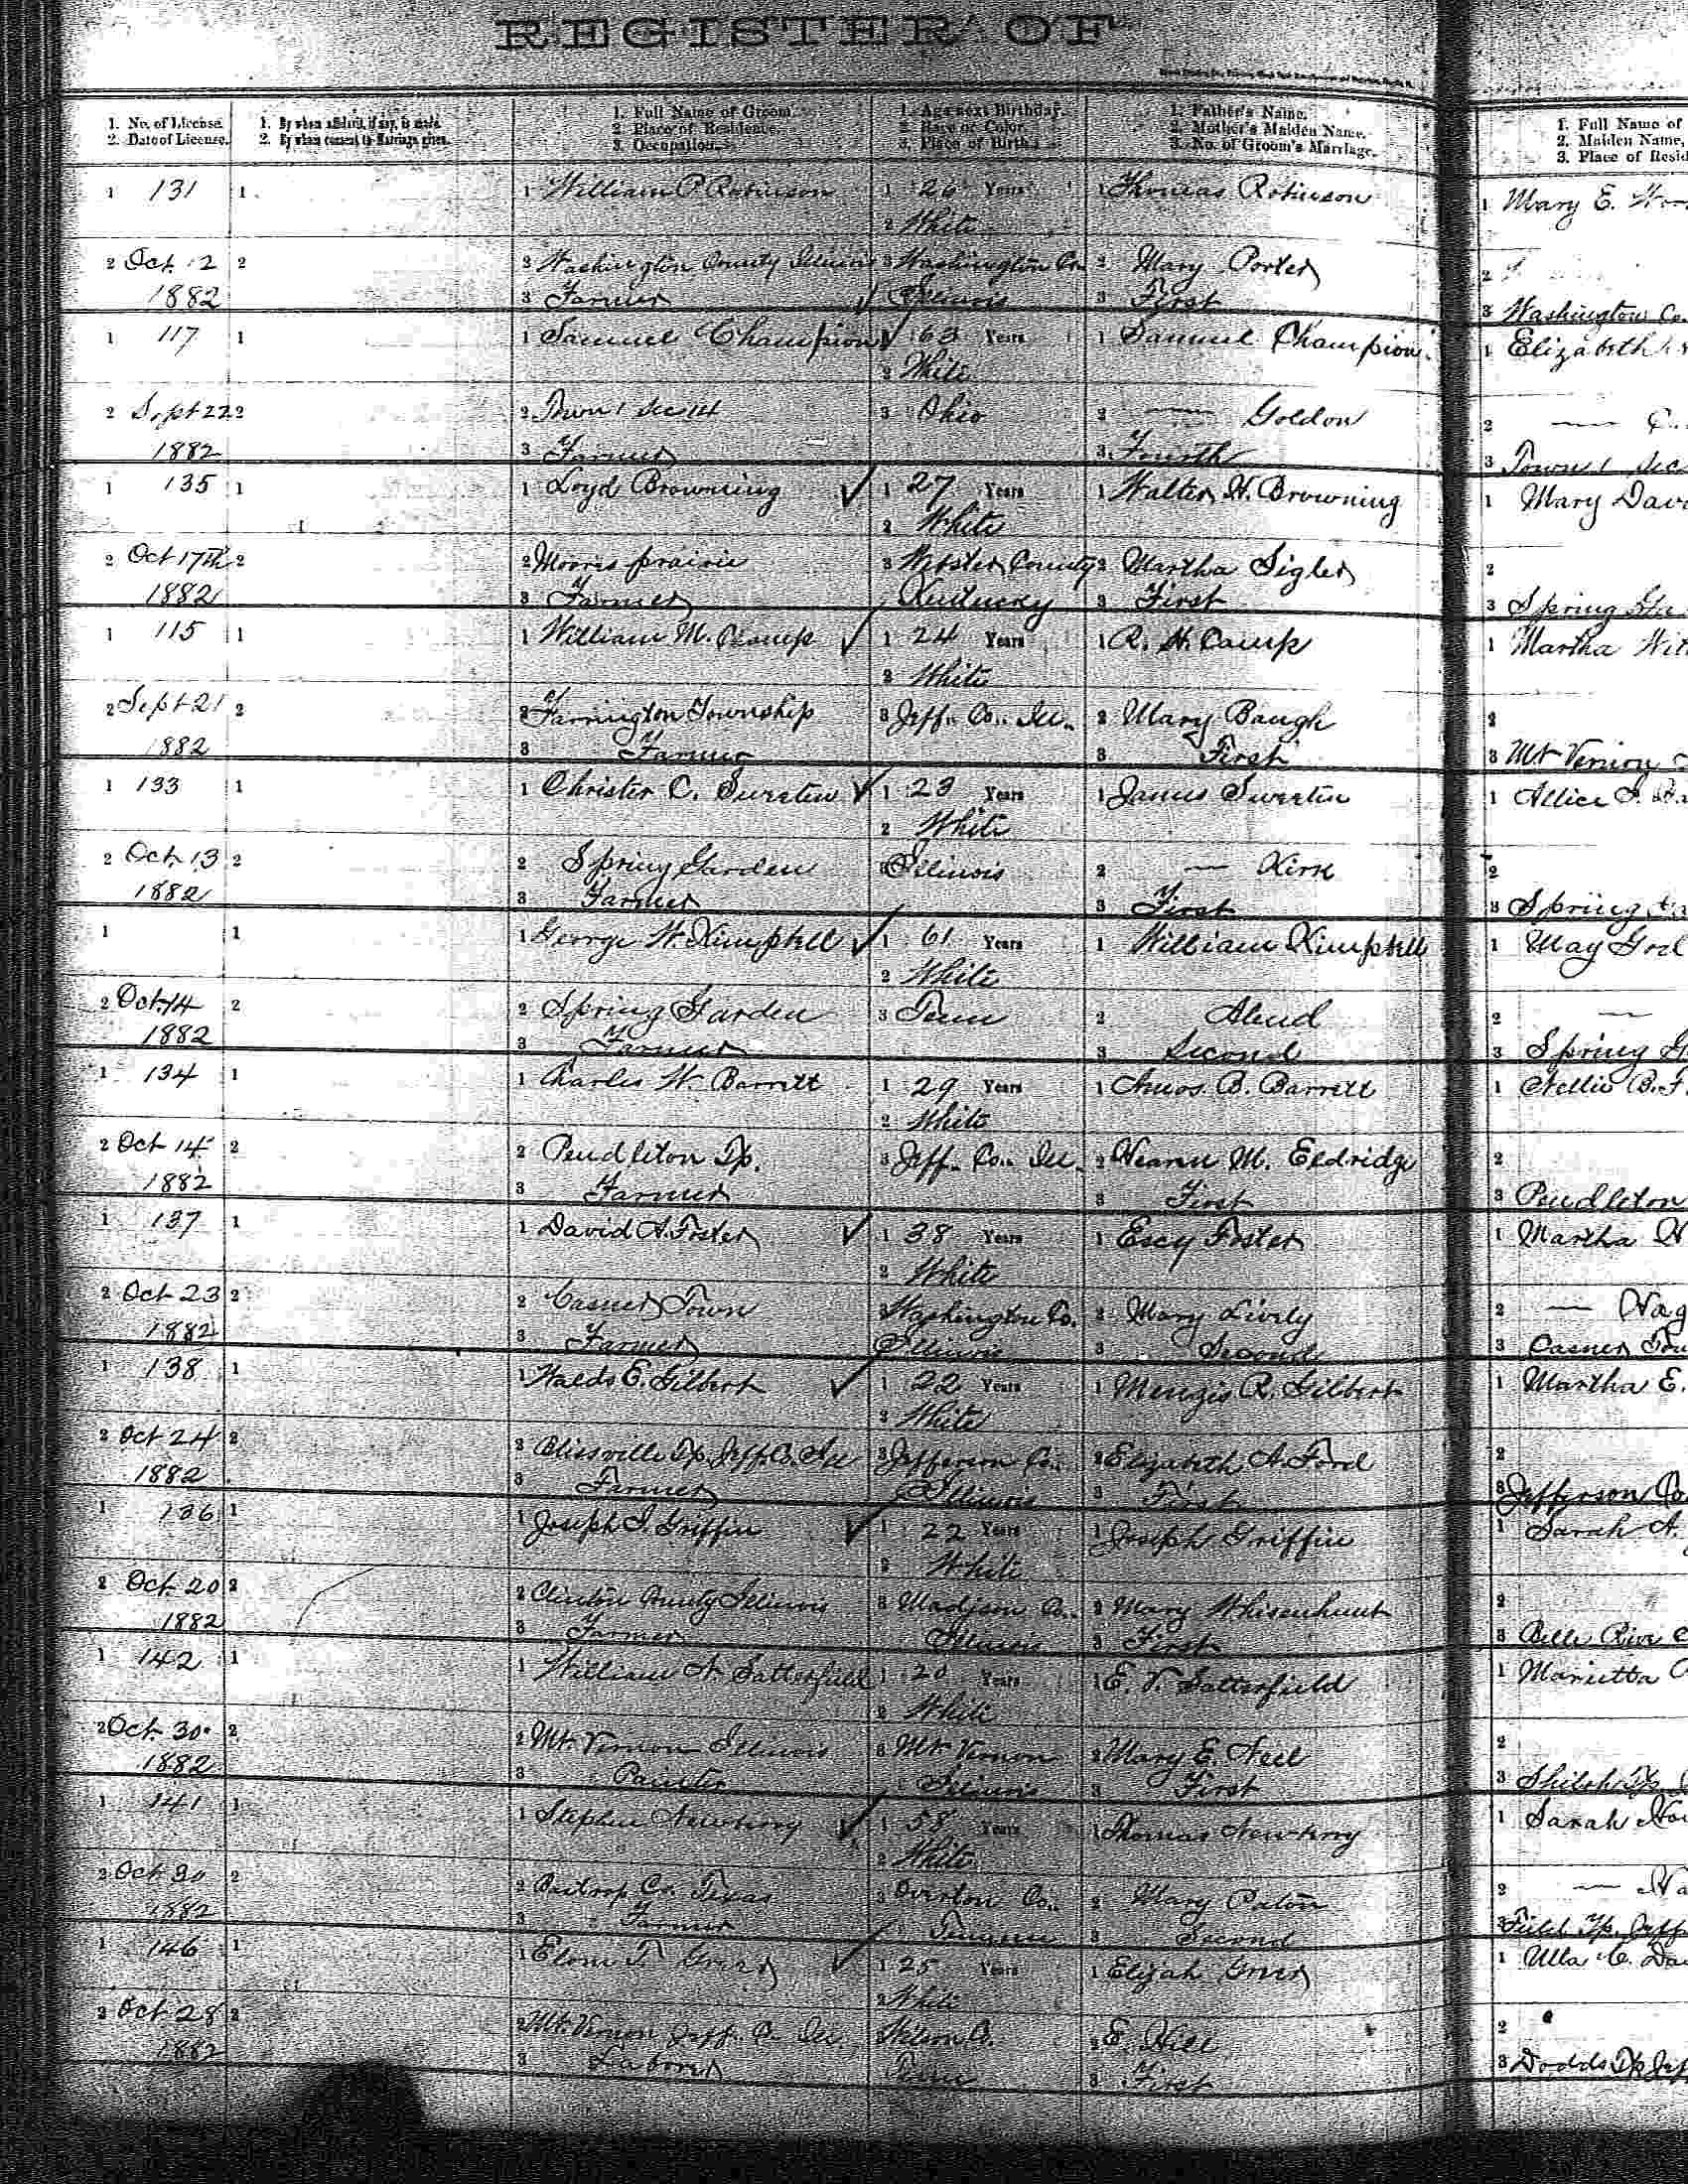 REGISTER OF
1. No. of License. 2. Date of License.
1. By whom affidavit, if any, is made. 2. By whom consent to Marriage given.
1. Full Name of Groom. 2. Place of Residence. 3. Occupation.
1. Age next Birthday. 2. Race or Color. 3. Place of Birth.
1. Father's Name. 2. Mother's Maiden Name. 3. No. of Groom's Marriage.
1. Full Name of 2. Maiden Name, 3. Place of Resid
1 131 1 1 William P Robinson 1 26 Years 1 Thomas Robinson 1 Mary E.
2 White
2 Oct. 12 2 2 Washington County Illinois 3 Washington Co. 2 Mary Porter 2
1882 3 Farmer Illinois 3 First 3 Washington Co.
1 117 1 1 Samuel Champion 1 63 Years 1 Samuel Champion. 1 Elizabeth
2 White
2 Sept 22 2 2 Town 1 Sec 14 3 Ohio 2 — Goldon 2 —
1882 3 Farmer 3 Fourth 3 Town 1 Sec
1 135 1 1 Loyd Browning 1 27 Years 1 Walter H. Browning 1 Mary Davi
2 White
2 Oct 17th 2 2 Moores prairie 3 Webster County 2 Martha Sigler 2
1882 3 Farmer Kentucky 3 First 3 Spring
1 115 1 1 William M. Camp 1 24 Years 1 R. H. Camp 1 Martha
2 White
2 Sept 21 2 2 Farrington Township 3 Jeff. Co. Ill. 2 Mary Baugh 2
1882 3 Farmer 3 First 3 Mt Vernon
1 133 1 1 Christer C. Sweeten 1 23 Years 1 James Sweeten 1 Allice
2 White
2 Oct. 13 2 2 Spring Garden 3 Illinois 2 — Kirk 2
1882 3 Farmer 3 First 3 Spring
1 1 1 George W. Kimpkell 1 61 Years 1 William Kimpkell 1 May
2 White
2 Oct. 14 2 2 Spring Garden 3 Tenn 2 2 —
1882 3 Farmer 3 Second 3 Spring
1 134 1 1 Charles W. Barrett 1 29 Years 1 Amos. B. Barrett 1 Nellie B.
2 White
2 Oct 14 2 2 Pendleton Tp. 3 Jeff. Co. Ill. 2 M. Eldridge 2
1882 3 Farmer 3 First 3 Pendleton
1 137 1 1 David A. Foster 1 38 Years 1 Escy Foster 1 Martha
2 White
2 Oct 23 2 2 Casner Town 3 Washington Co. 2 Mary Lively 2 —
1882 3 Farmer Illinois 3 Second 3 Casner Tow
1 138 1 1 Waldo E. Gilbert 1 22 Years 1 Menzis R. Gilbert 1 Martha E.
2 White
2 Oct 24 2 2 Blissville Tp. Jeff. Co. Ill 3 Jefferson Co. 2 Elizabeth A. Ford 2
1882 3 Farmer Illinois 3 First 3 Jefferson Co
1 136 1 1 Joseph I. Griffin 1 22 Years 1 Joseph Griffin 1 Sarah A.
2 White
2 Oct. 20 2 2 Clinton County Illinois 3 Madison Co. 2 Mary Whisenhunt 2
1882 3 Farmer Illinois 3 First 3 Belle Rive
1 142 1 1 William A. Satterfield 1 20 Years 1 E. V. Satterfield 1 Marietta
2 White
2 Oct. 30. 2 2 Mt. Vernon Illinois 3 Mt. Vernon 2 Mary E. Neel 2
1882 3 Painter Illinois 3 First 3 Shiloh Tp
1 141 1 1 Stephen Newberry 1 58 Years 1 Thomas Newberry 1 Sarah
2 White
2 Oct. 30 2 2 Bastrop Co. Texas 3 Overton Co. 2 Mary Paton 2 —
1882 3 Farmer 3 Second 3 Field Tp. Jeff
1 146 1 1 1 25 Years 1 Elijah 1
2 White
2 Oct 28 2 2 Mt Vernon Jeff. Co. Ill Wilson Co. 2 E. Hill 2
1882 3 Laborer Tenn 3 First 3 Dodds Tp Jef